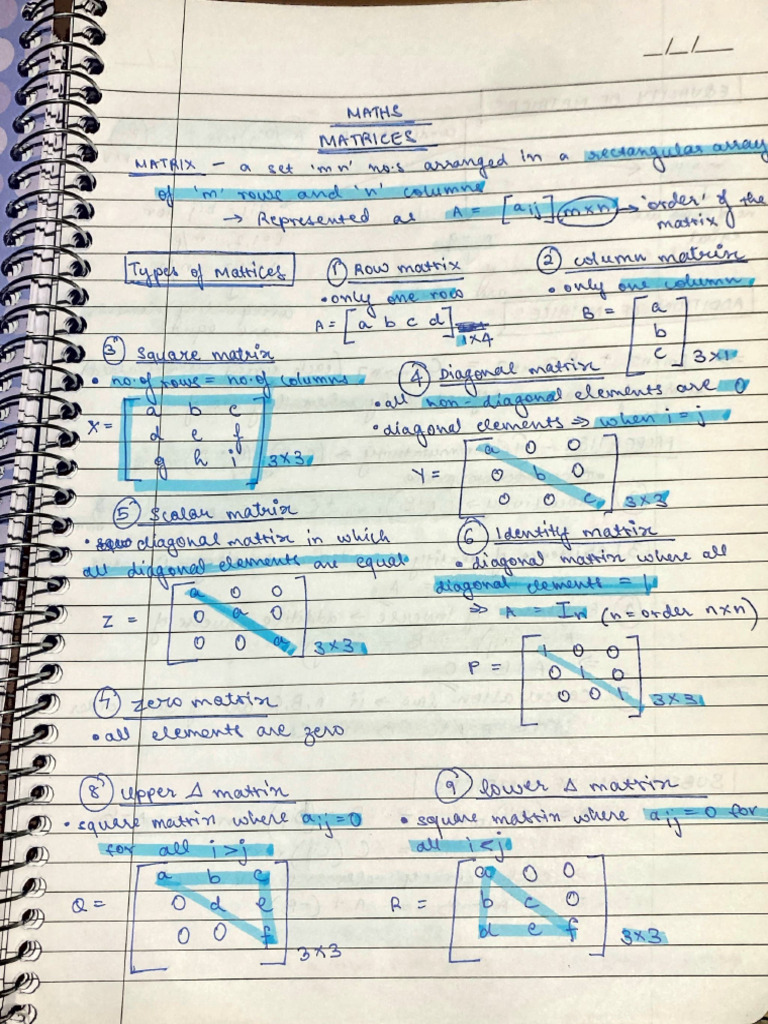 _/_/__
MATHS
MATRICES
MATRIX - a set 'mn' no.s arranged in a rectangular array
of 'm' rows and 'n' columns
→ Represented as A = [aij] m×n → 'order' of the matrix
Types of Matrices
① Row matrix
• only one row
A = [a b c d] 1×4
② column matrix
• only one column
B = [a
b
c] 3×1
③ Square matrix
• no. of rows = no. of columns
X = [a b c
d e f
g h i] 3×3
④ Diagonal matrix
• all non-diagonal elements are 0
• diagonal elements ⇒ when i = j
Y = [a 0 0
0 b 0
0 0 c] 3×3
⑤ Scalar matrix
• diagonal matrix in which
all diagonal elements are equal
Z = [a 0 0
0 a 0
0 0 a] 3×3
⑥ Identity matrix
• diagonal matrix where all
diagonal elements = 1
⇒ A = In (n = order n×n)
P = [1 0 0
0 1 0
0 0 1] 3×3
⑦ zero matrix
• all elements are zero
⑧ upper Δ matrix
• square matrix where aij = 0
for all i>j
Q = [a b c
0 d e
0 0 f] 3×3
⑨ lower Δ matrix
• square matrix where aij = 0 for
all i<j
R = [a 0 0
b c 0
d e f] 3×3